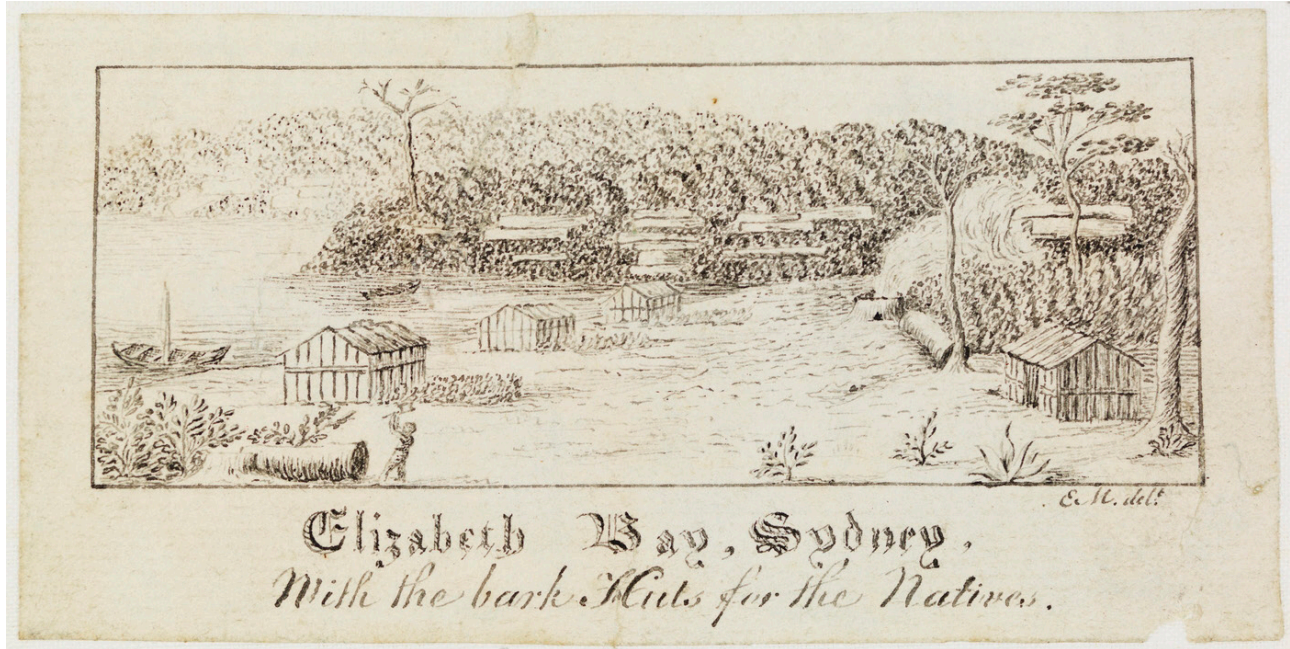 E.M. delt.
Elizabeth Bay, Sydney,
With the bark Huts for the Natives.